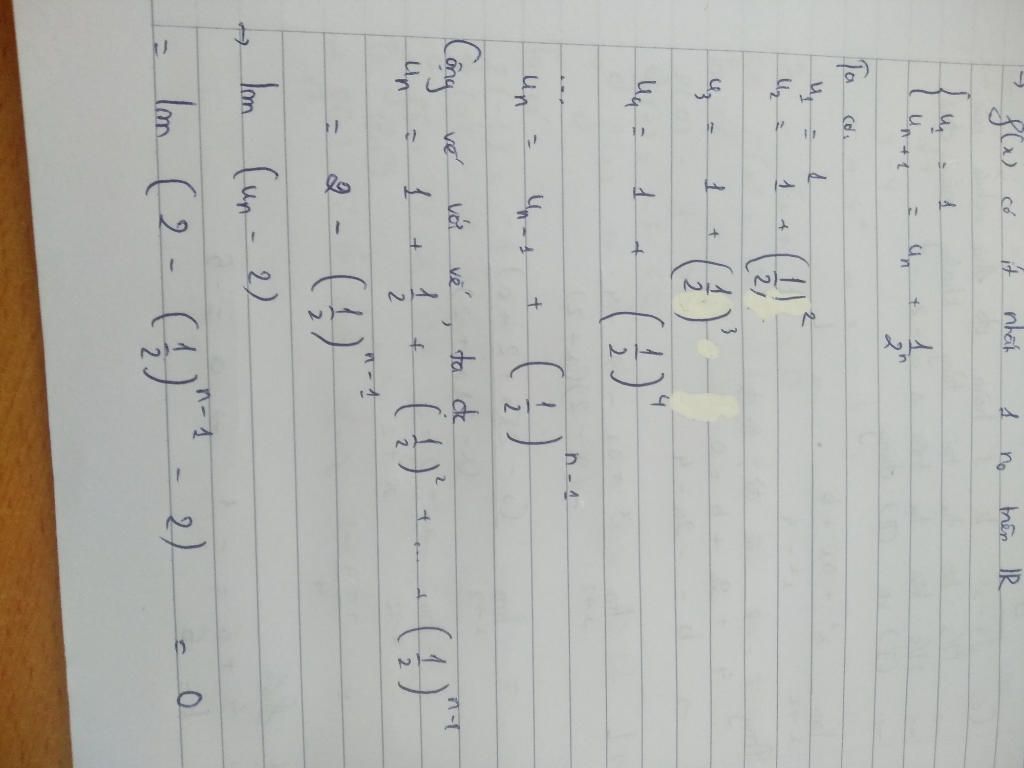 → f(x) có ít nhất 1 n₀ trên ℝ
{ u₁ = 1
uₙ₊₁ = uₙ + 1/2ⁿ
Ta có,
u₁ = 1
u₂ = 1 + (1/2)²
u₃ = 1 + (1/2)³
u₄ = 1 + (1/2)⁴
...
uₙ = uₙ₋₁ + (1/2)ⁿ⁻¹
Cộng vế với vế, ta đc
uₙ = 1 + 1/2 + (1/2)² + ... + (1/2)ⁿ⁻¹
= 2 - (1/2)ⁿ⁻¹
→ lim (uₙ - 2)
= lim (2 - (1/2)ⁿ⁻¹ - 2) = 0